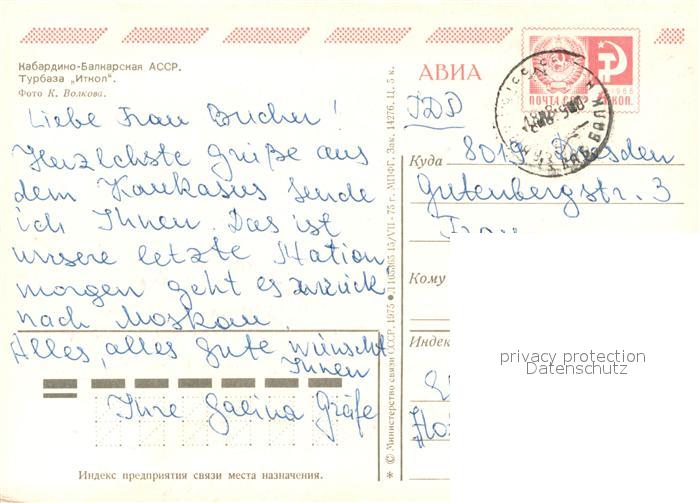 Кабардино-Балкарская АССР.
Турбаза „Иткол“.
Фото К. Волкова.
Liebe Frau Bucher!
Herzlchste Grüße aus
dem Kaukasus sende
ich Ihnen. Das ist
unsere letzte Station
morgen geht es zurück
nach Moskau.
Alles, alles gute wünscht
Ihnen
Ihre Galina Gräfe
Индекс предприятия связи места назначения.
* © Министерство связи СССР, 1975
15/VII - 75 г. МПФГ. Зак. 14276. Ц. 5 к.
АВИА
ПОЧТА СССР
КОП.
1966
Куда 8019 Dresden
Gutenbergstr. 3
Frau
Кому
Индек
privacy protection
Datenschutz